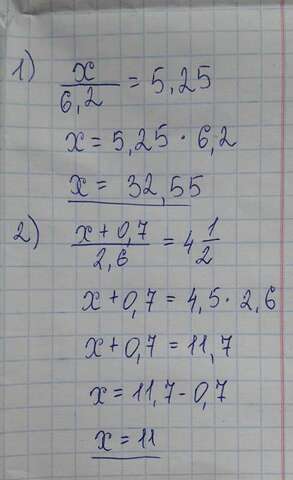 1) x/6,2 = 5,25
x = 5,25 · 6,2
x = 32,55
2) x+0,7/2,6 = 4 1/2
x+0,7 = 4,5 · 2,6
x+0,7 = 11,7
x = 11,7-0,7
x = 11